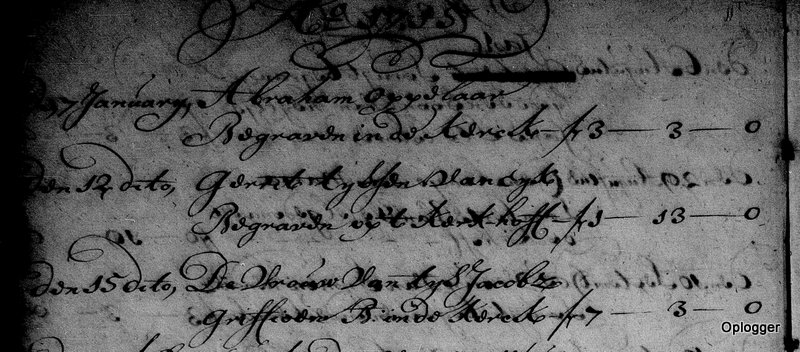 Aº 1715
den 7 January, Abraham Oppelaar
Begraven in de Kerck f 3 — 3 — 0
den 12 dito, Gerrit Tyssen van
Begraven op't Kerkhoff f 1 — 13 — 0
den 15 dito, De Vrouw van Tys Jacobz
Griffioen B: in de Kerck f 7 — 3 — 0
Oplogger